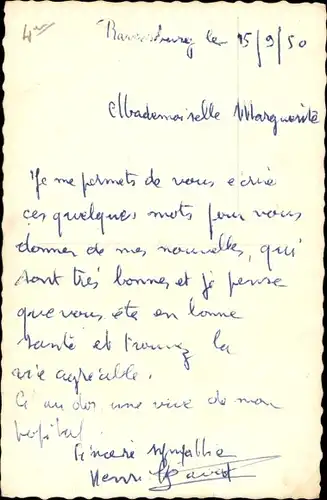 le 15/9/50
Mademoiselle Marguerite
Je me permets de vous ecrire
ces quelques mots pour vous
donner de mes nouvelles, qui
sont très bonnes et je pense
que vous ête en bonne
santé et trouvez la
vie agréable.
Ci au dos, une vue de mon
hopital
Sincere sympathie
Henri